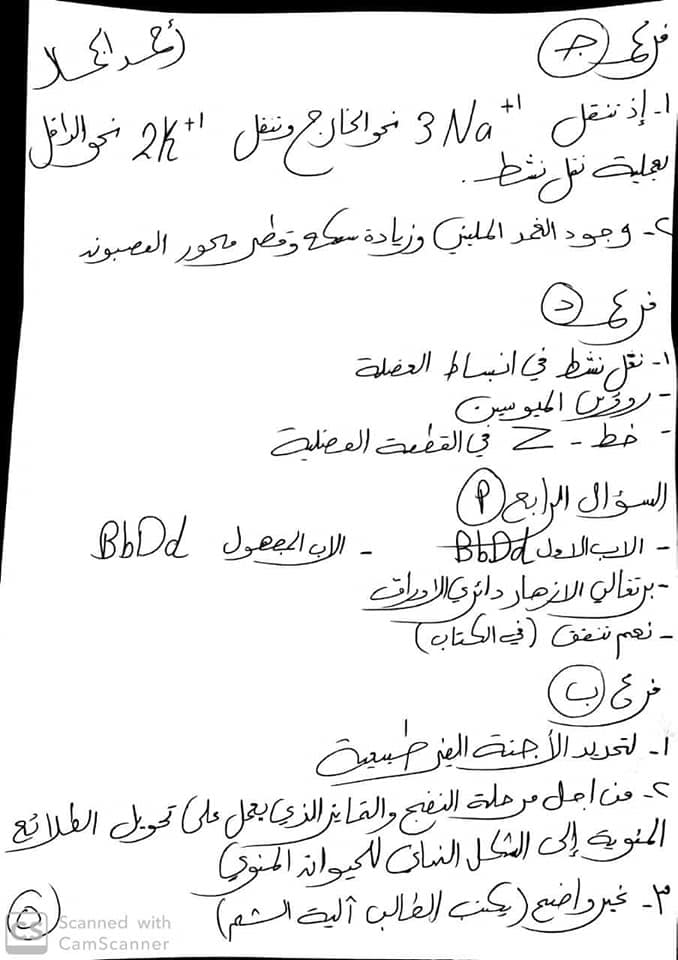 أحمد الجلا
فرع ج
١- إذ تنقل 3Na+1 نحو الخارج وتنقل 2K+1 نحو الداخل
بعملية نقل نشط.
٢- وجود الغمد المليني وزيادة سمكه وقطر محور العصبون
فرع د
١- نقل نشط في انبساط العضلة
- رؤوس الميوسين
- خط - Z في القطعة العضلية
السؤال الرابع P
- الاب الاول BbDd - الاب المجهول BbDd
- برتقالي الازهار دائري الاوراق
- نعم نتفق (في الكتاب)
فرع ب
١- لتحديد الأجنة الغير طبيعية
٢- من اجل مرحلة النضج والتمايز الذي يعمل على تحويل الطلائع
المنوية إلى الشكل النهائي للحيوان المنوي
٣- غير واضح (يكتب الطالب آلية الشم)
٥
CS Scanned with
CamScanner